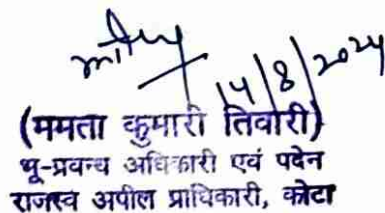 14/8/2024
(ममता कुमारी तिवारी)
भू-प्रवन्ध अधिकारी एवं पदेन
राजस्व अपील प्राधिकारी, कोटा